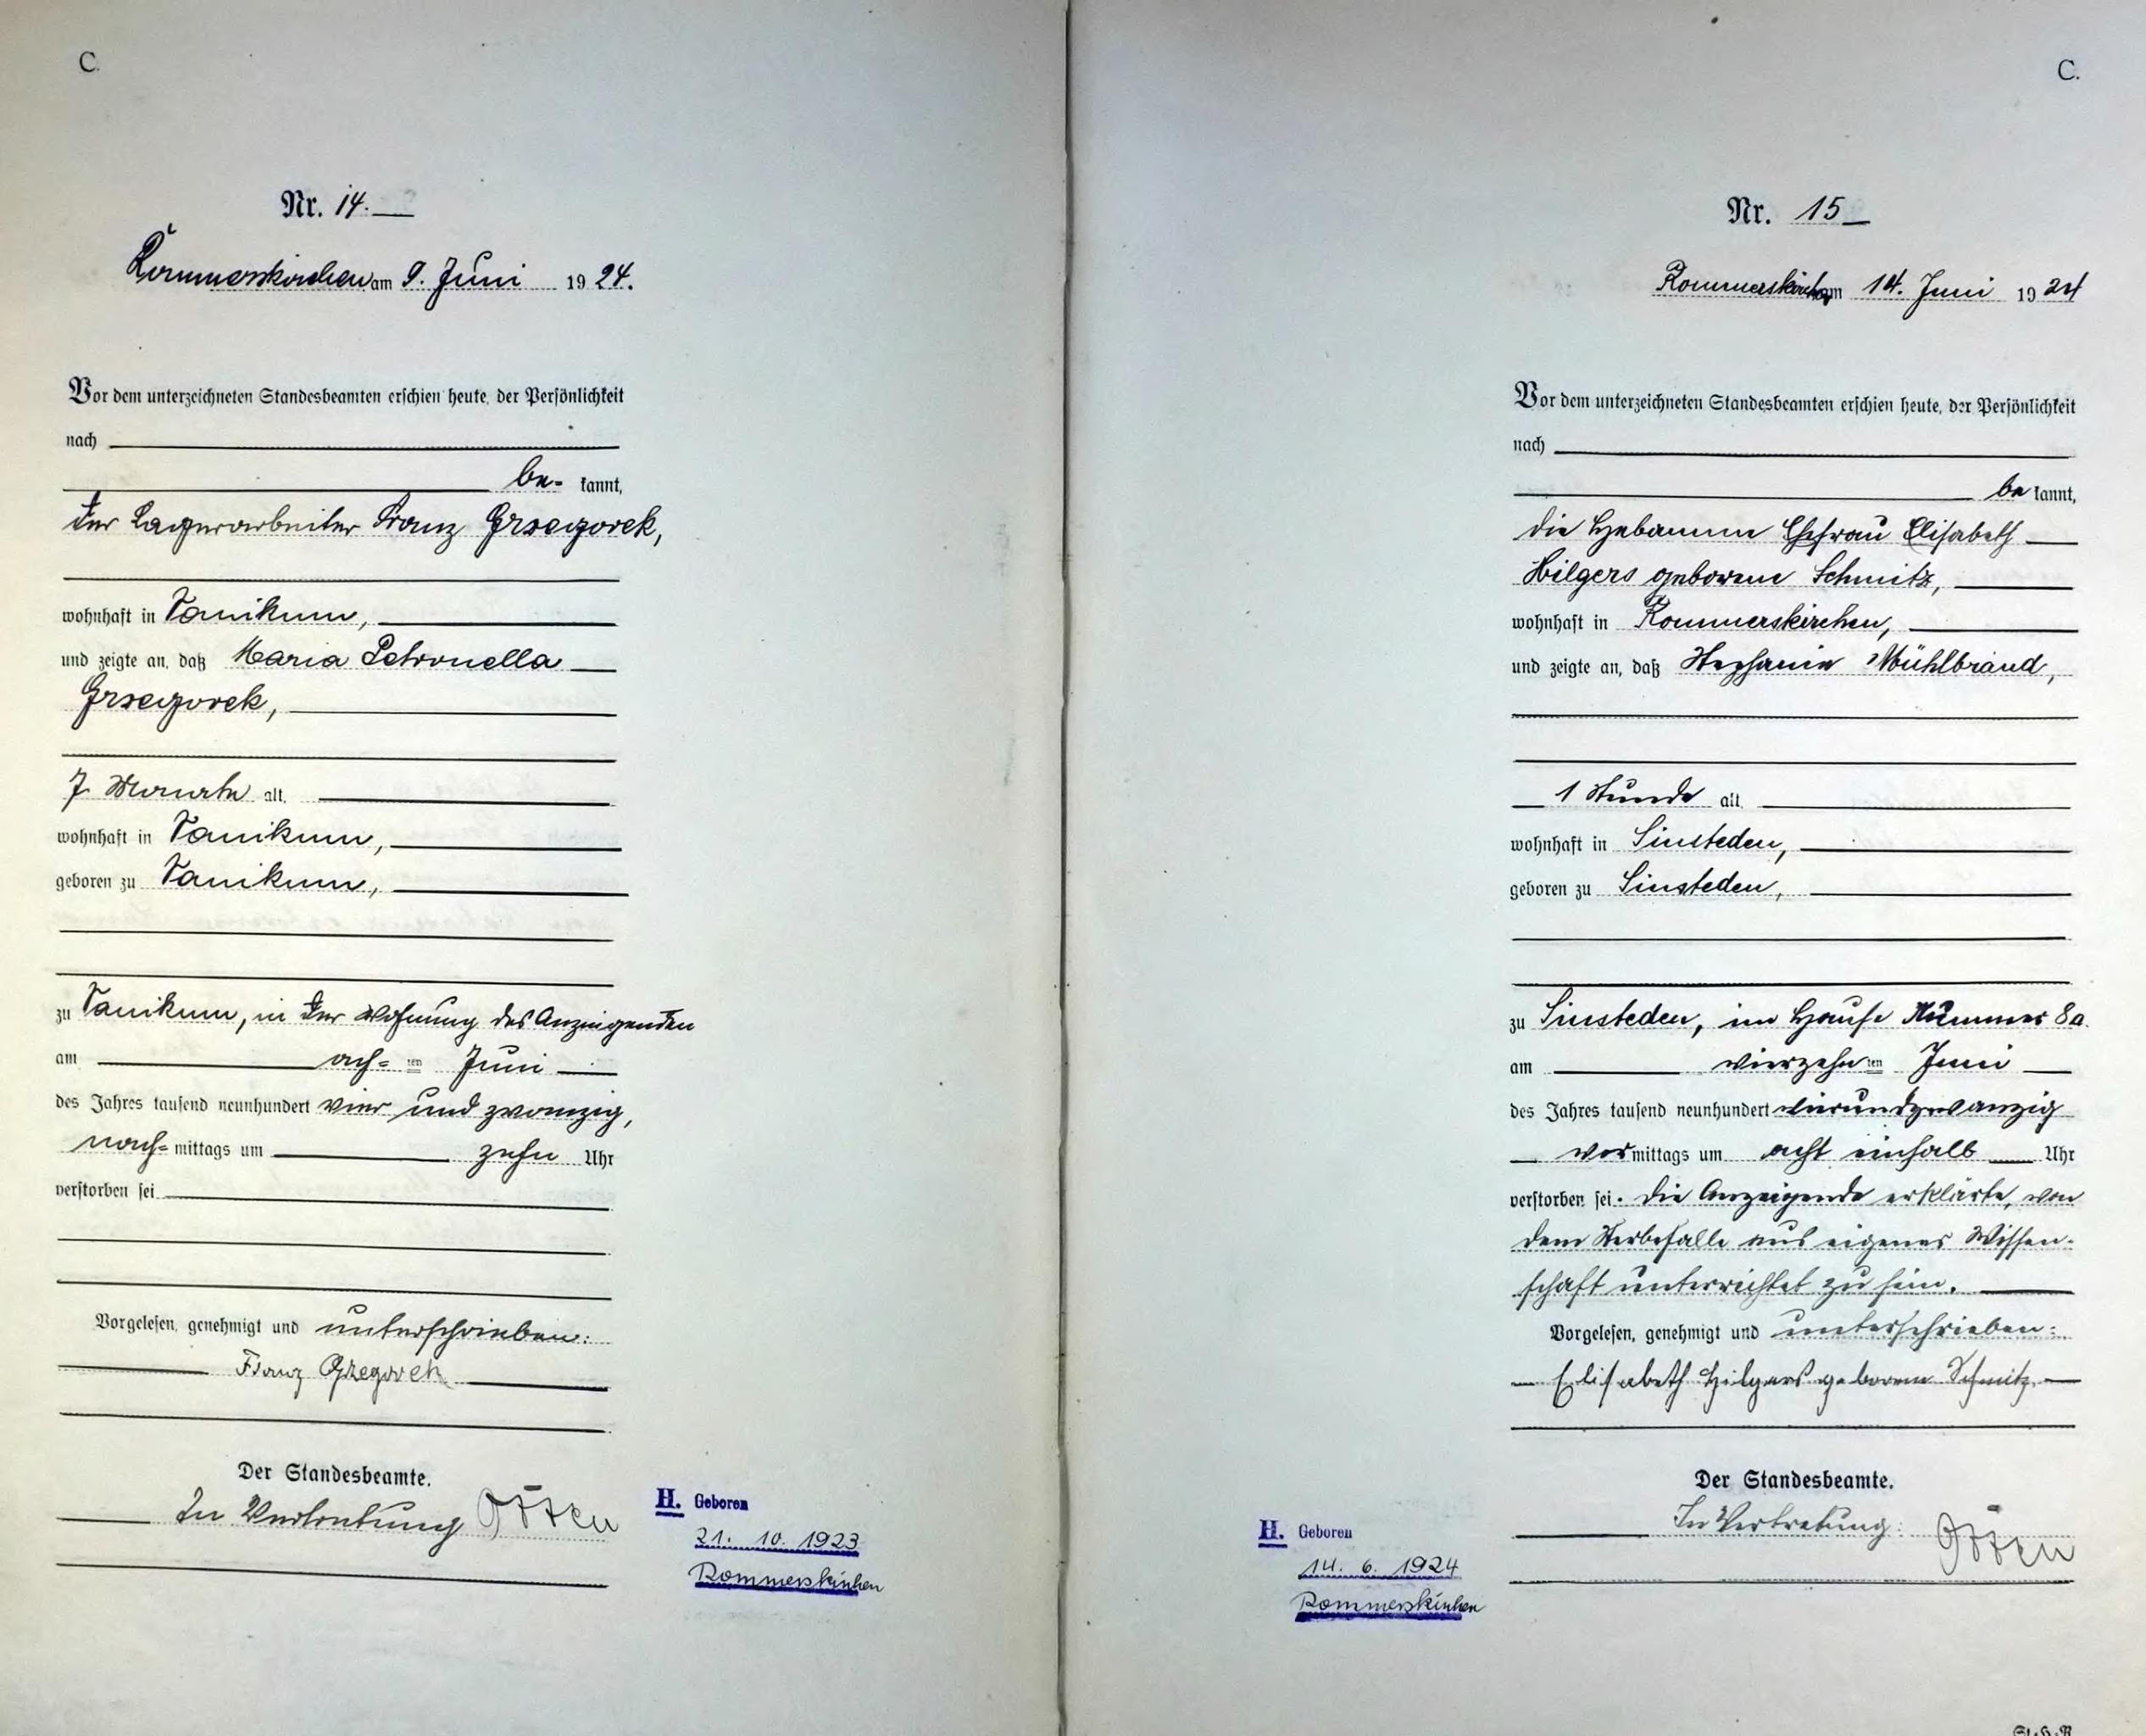 C.
Nr. 14.
Rommerskirchen am 9. Juni 1924.
Vor dem unterzeichneten Standesbeamten erschien heute, der Persönlichkeit
nach
be- kannt,
der Lagerarbeiter Franz Grsegorek,
wohnhaft in Vanikum,
und zeigte an, daß Maria Petronella
Grsegorek,
7 Monate alt,
wohnhaft in Vanikum,
geboren zu Vanikum,
zu Vanikum, in der Wohnung des Anzeigenden
am ach= ten Juni
des Jahres tausend neunhundert vier und zwanzig,
nach= mittags um zehn Uhr
verstorben sei
Vorgelesen, genehmigt und unterschrieben:
Franz Grzegorek
Der Standesbeamte.
In Vertretung Osten
H. Geboren
21. 10. 1923
Rommerskirchen
C.
Nr. 15
Rommerskirchen am 14. Juni 1924
Vor dem unterzeichneten Standesbeamten erschien heute, der Persönlichkeit
nach
be kannt,
die Hebamme Ehefrau Elisabeth
Hilgers geborene Schmitz,
wohnhaft in Rommerskirchen,
und zeigte an, daß Stephanie Mühlbrand,
1 Stunde alt,
wohnhaft in Sinsteden,
geboren zu Sinsteden,
zu Sinsteden, im Hause Nummer 8a.
am vierzehn ten Juni
des Jahres tausend neunhundert vierundzwanzig
vor mittags um acht einhalb Uhr
verstorben sei. Die Anzeigende erklärte, von
dem Sterbefalle aus eigener Wissen-
schaft unterrichtet zu sein.
Vorgelesen, genehmigt und unterschrieben:
Elisabeth Hilgers geborene Schmitz
Der Standesbeamte.
In Vertretung: Osten
H. Geboren
14. 6. 1924
Rommerskirchen